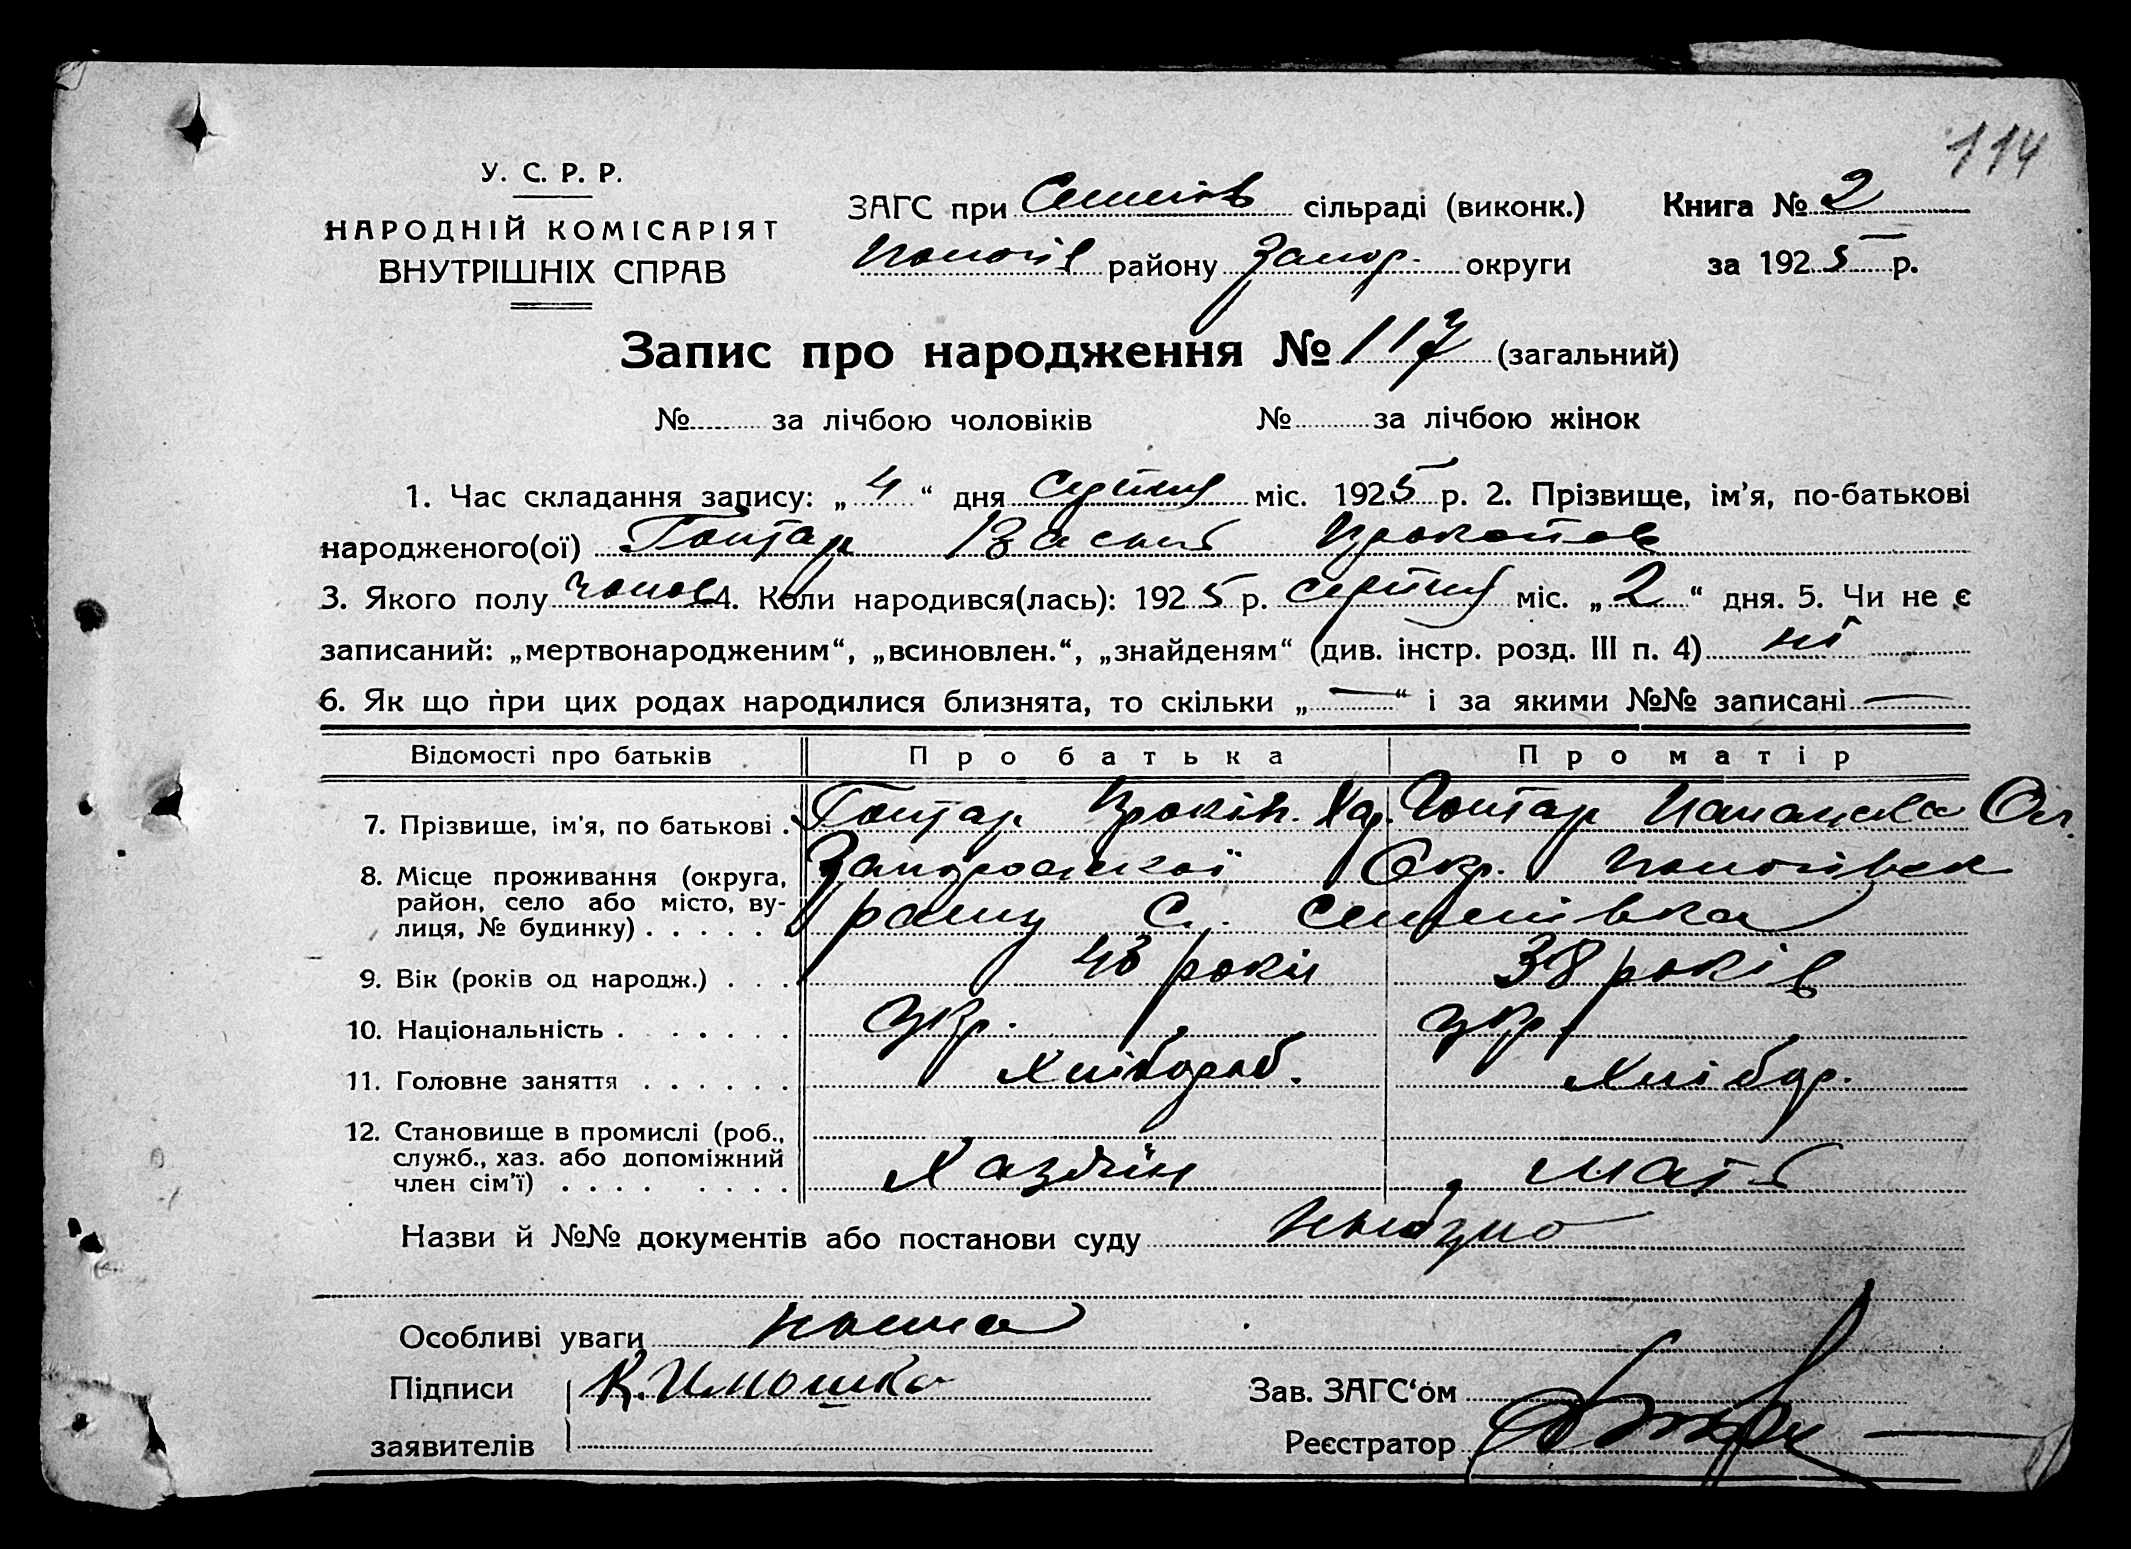 114
У. С. Р. Р.
НАРОДНІЙ КОМІСАРІЯТ
ВНУТРІШНІХ СПРАВ
ЗАГС при Семенів сільраді (виконк.) Книга № 2
Пологів району Запор. округи за 1925 р.
Запис про народження № 117 (загальний)
№ за лічбою чоловіків № за лічбою жінок
1. Час складання запису: „4“ дня Серпня міс. 1925 р. 2. Прізвище, ім'я, по-батькові
народженого(ої) Гонтар Василь Прокопов
3. Якого полу чолов 4. Коли народився(лась): 1925 р. Серпня міс. „2“ дня. 5. Чи не є
записаний: „мертвонародженим“, „всиновлен.“, „знайденям“ (див. інстр. розд. III п. 4) ні
6. Як що при цих родах народилися близнята, то скільки „—“ і за якими №№ записані —
Відомості про батьків Про батька Про матір
7. Прізвище, ім'я, по батькові . Гонтар Прокіп. Хар. Гонтар Ол.
8. Місце проживання (округа, район, село або місто, вулиця, № будинку) . . . . . Запорожської Окр. Пологівск
райну С. Семенівка
9. Вік (років од народж.) . . . 43 роки 38 років
10. Національність . . . . . . . Укр. укр.
11. Головне заняття . . . . . . Хлібороб. Хлібор.
12. Становище в промислі (роб., служб., хаз. або допоміжний член сім'ї) . . . . . . . . Хазяїн мать
Назви й №№ документів або постанови суду
Особливі уваги нема
Підписи К.
заявителів
Зав. ЗАГС'ом
Реєстратор